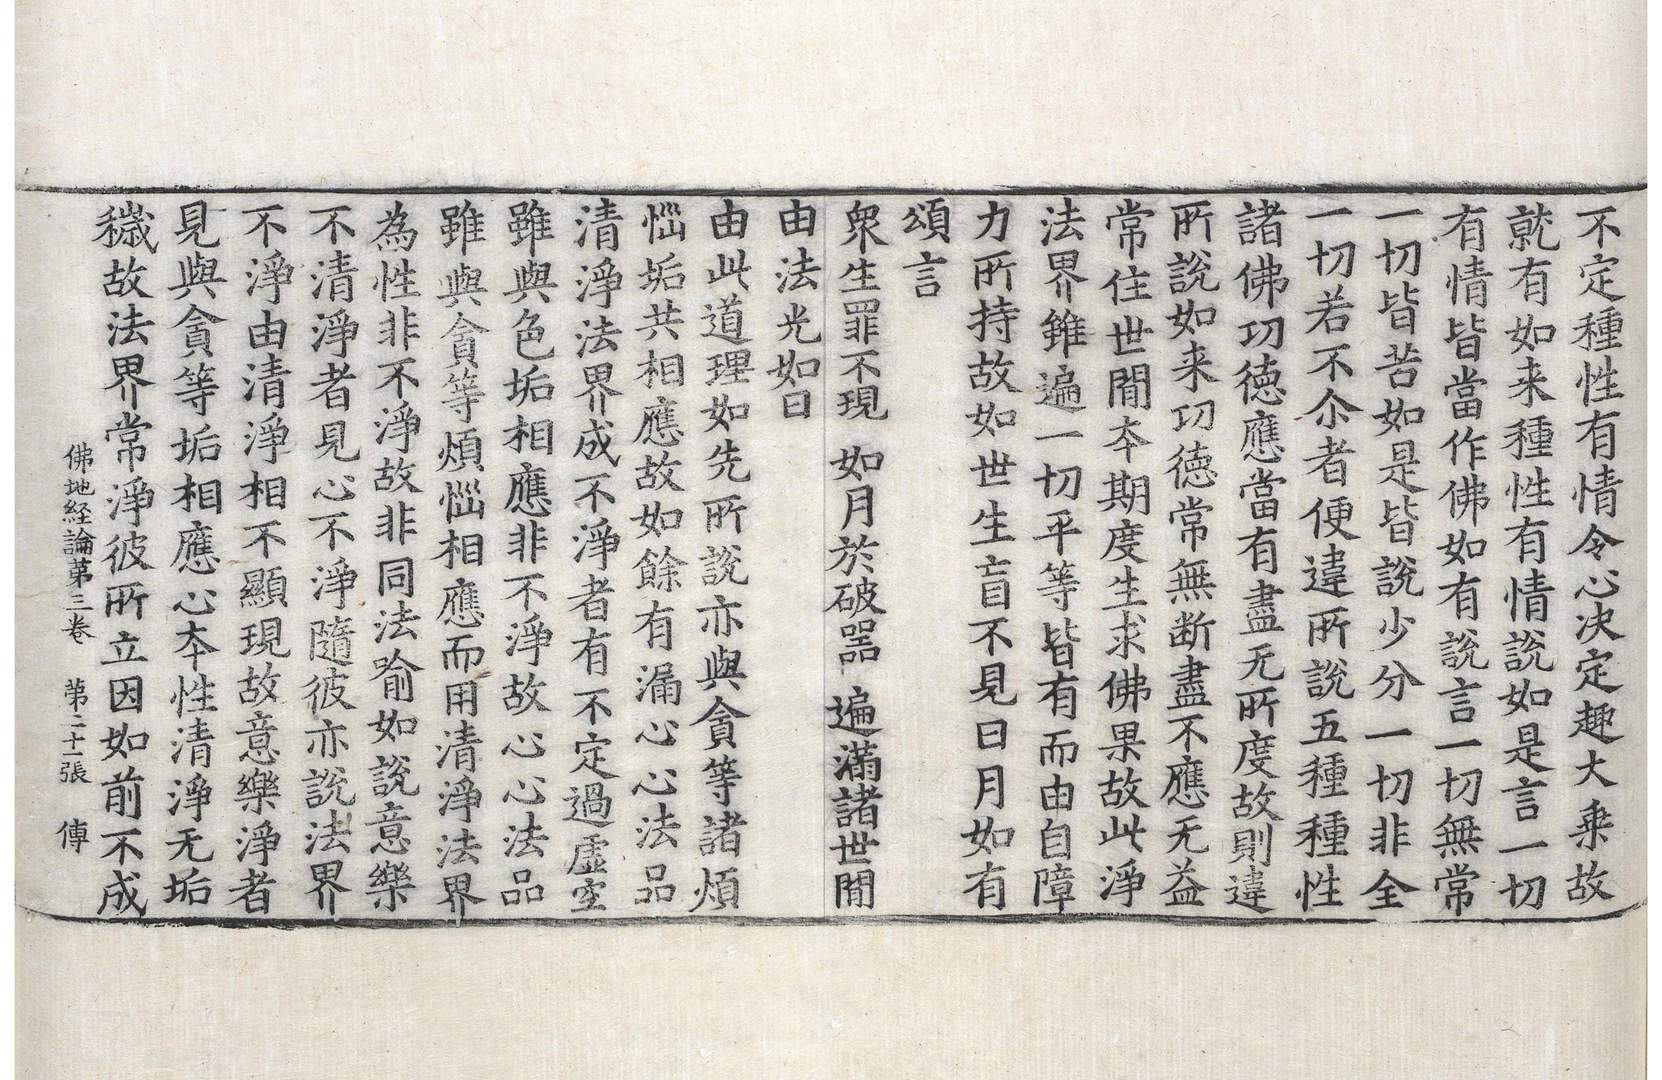 不定種性有情令心决定趣大乗故
就有如来種性有情說如是言一切
有情皆當作佛如有說言一切無常
一切皆苦如是皆說少分一切非全
一切若不尒者便違所說五種種性
諸佛功德應當有盡无所度故則違
所說如来功德常無断盡不應无益
常住世間夲期度生求佛果故此淨
法界雖遍一切平等皆有而由自障
力所持故如世生盲不見日月如有
頌言
衆生罪不現 如月於破器 遍滿諸世間
由法光如日
由此道理如先所說亦與貪等諸煩
惱垢共相應故如餘有漏心心法品
清淨法界成不淨者有不定過虛空
雖與色垢相應非不淨故心心法品
雖與貪等煩惱相應而用清淨法界
為性非不淨故非同法喻如說意樂
不清淨者見心不淨隨彼亦說法界
不淨由清淨相不顯現故意樂淨者
見與貪等垢相應心夲性清淨无垢
穢故法界常淨彼所立因如前不成
佛地経論苐三卷 苐二十一張 傅